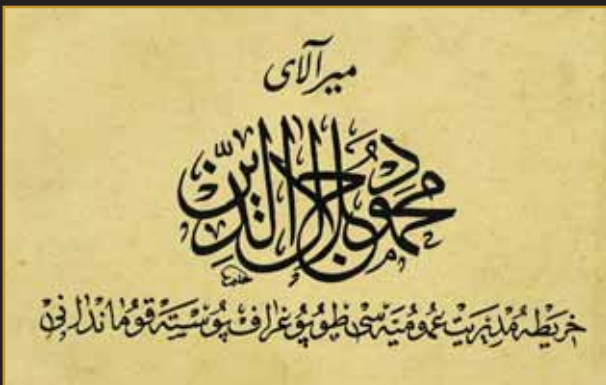 میرآلای
محمود جلال الدین
حامد
خریطه مدیریت عمومیه سی طوپوغراف پوسته قوماندانی